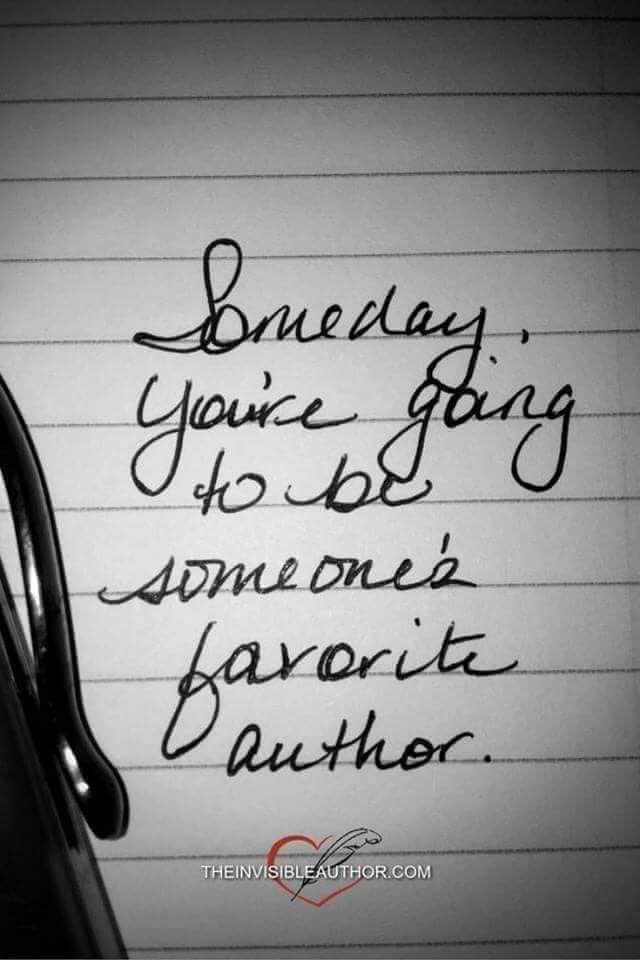 Someday,
you're going
to be
someone's
favorite
author.
THEINVISIBLEAUTHOR.COM